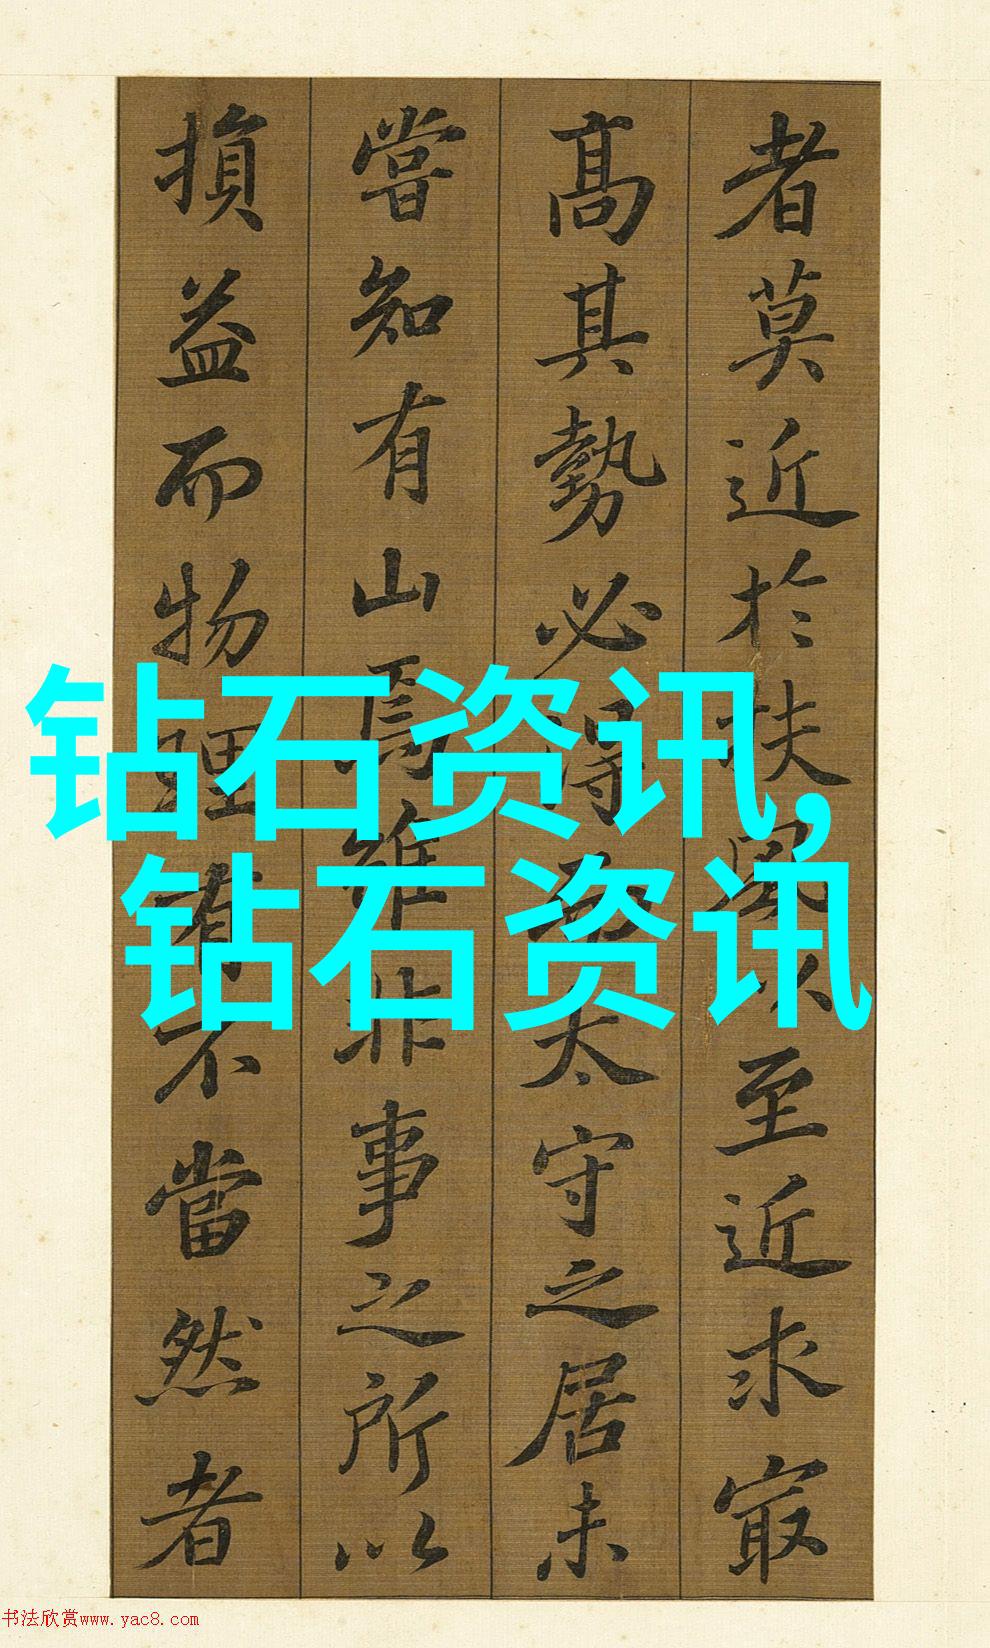 者莫近於扶風以至近求最
高其勢必得而太守之居未
嘗知有山焉雖非事之所以
損益而物理有不當然者
钻石资讯,
钻石资讯
书法欣赏www.yac8.com